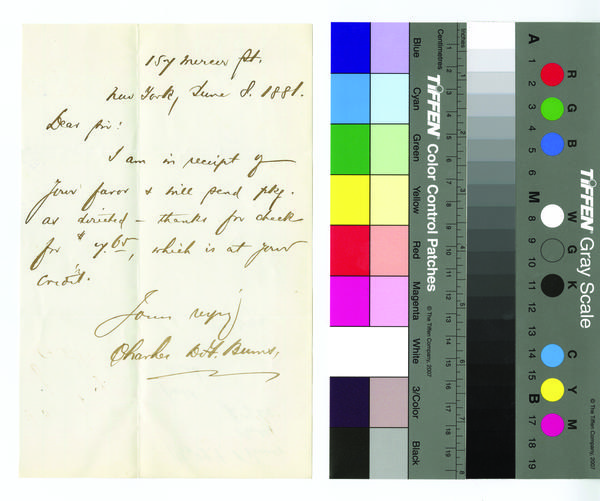 157 Mercer St.
New York, June 8. 1881.
Dear Sir:
I am in receipt of
your favor & will send pkg.
as directed – thanks for check
for $7.65, which is at your
credit.
Yours very
Charles De F. Burns,
Blue
Cyan
Green
Yellow
Red
Magenta
White
3/Color
Black
TIFFEN® Color Control Patches
© The Tiffen Company, 2007
Centimetres
Inches
1 2 3 4 5 6 7 8 9 10 11 12 13 14 15 16 17 18 19
1 2 3 4 5 6 7 8
TIFFEN® Gray Scale
© The Tiffen Company, 2007
A 1 2 3 4 5 6 M 8 9 10 11 12 13 14 15 B 17 18 19
R G B
W G K
C Y M